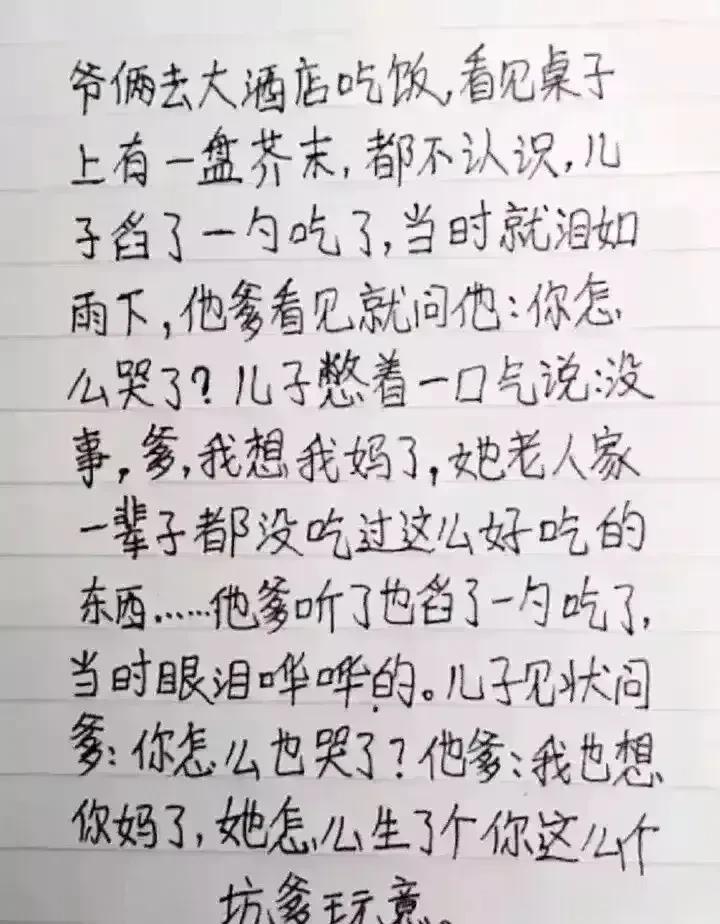 爷俩去大酒店吃饭,看见桌子
上有一盘芥末,都不认识,儿
子舀了一勺吃了,当时就泪如
雨下,他爹看见就问他:你怎
么哭了?儿子憋着一口气说:没
事,爹,我想我妈了,她老人家
一辈子都没吃过这么好吃的
东西……他爹听了也舀了一勺吃了,
当时眼泪哗哗的。儿子见状问
爹:你怎么也哭了?他爹:我也想
你妈了,她怎么生了个你这么个
坑爹玩意。